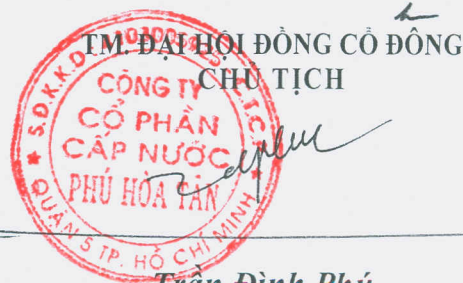 TM. ĐẠI HỘI ĐỒNG CỔ ĐÔNG
CHỦ TỊCH
S.Đ.K.K.D
C.T.C.P
CÔNG TY
CỔ PHẦN
CẤP NƯỚC
PHÚ HÒA TÂN
QUẬN 5 TP. HỒ CHÍ MINH
Trần Đình Phú